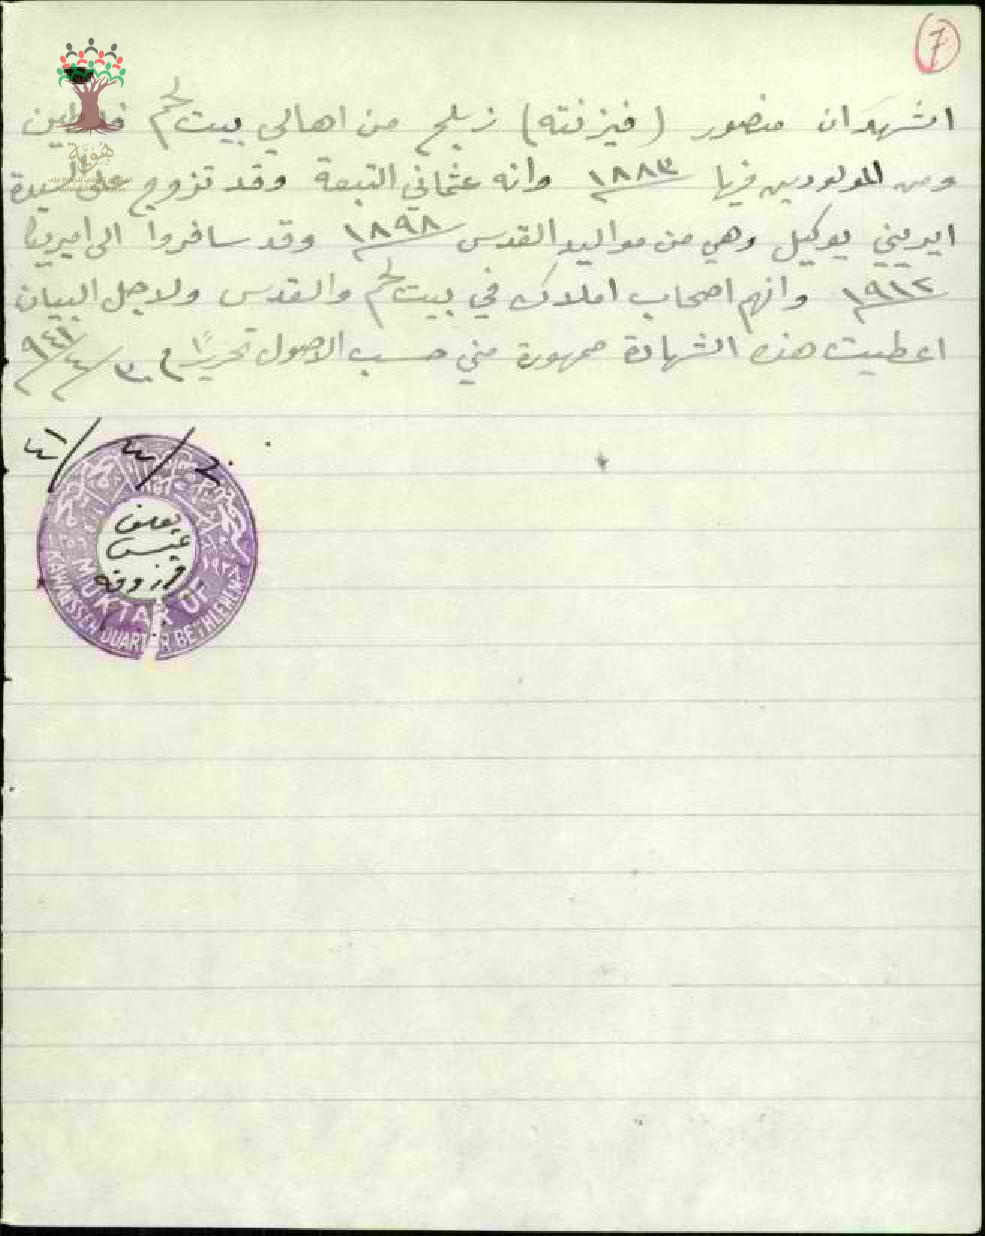 7
اشهد ان منصور (فيزنته) زبلح من اهالي بيت لحم فلسطين
ومن المولودين فيها ١٨٨٣ وانه عثماني التبعة وقد تزوج على السيدة
ايريني يوكيل وهي من مواليد القدس ١٨٩٨ وقد سافروا الى اميركا
١٩١٢ وانهم اصحاب املاك في بيت لحم والقدس ولاجل البيان
اعطيت هذه الشهادة ممهورة مني حسب الاصول تحريرًا
هوية
MUKTAR OF
QUARTER BETHLEHEM